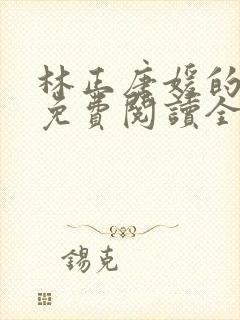 林正唐媛的
免費閱讀全
錫克